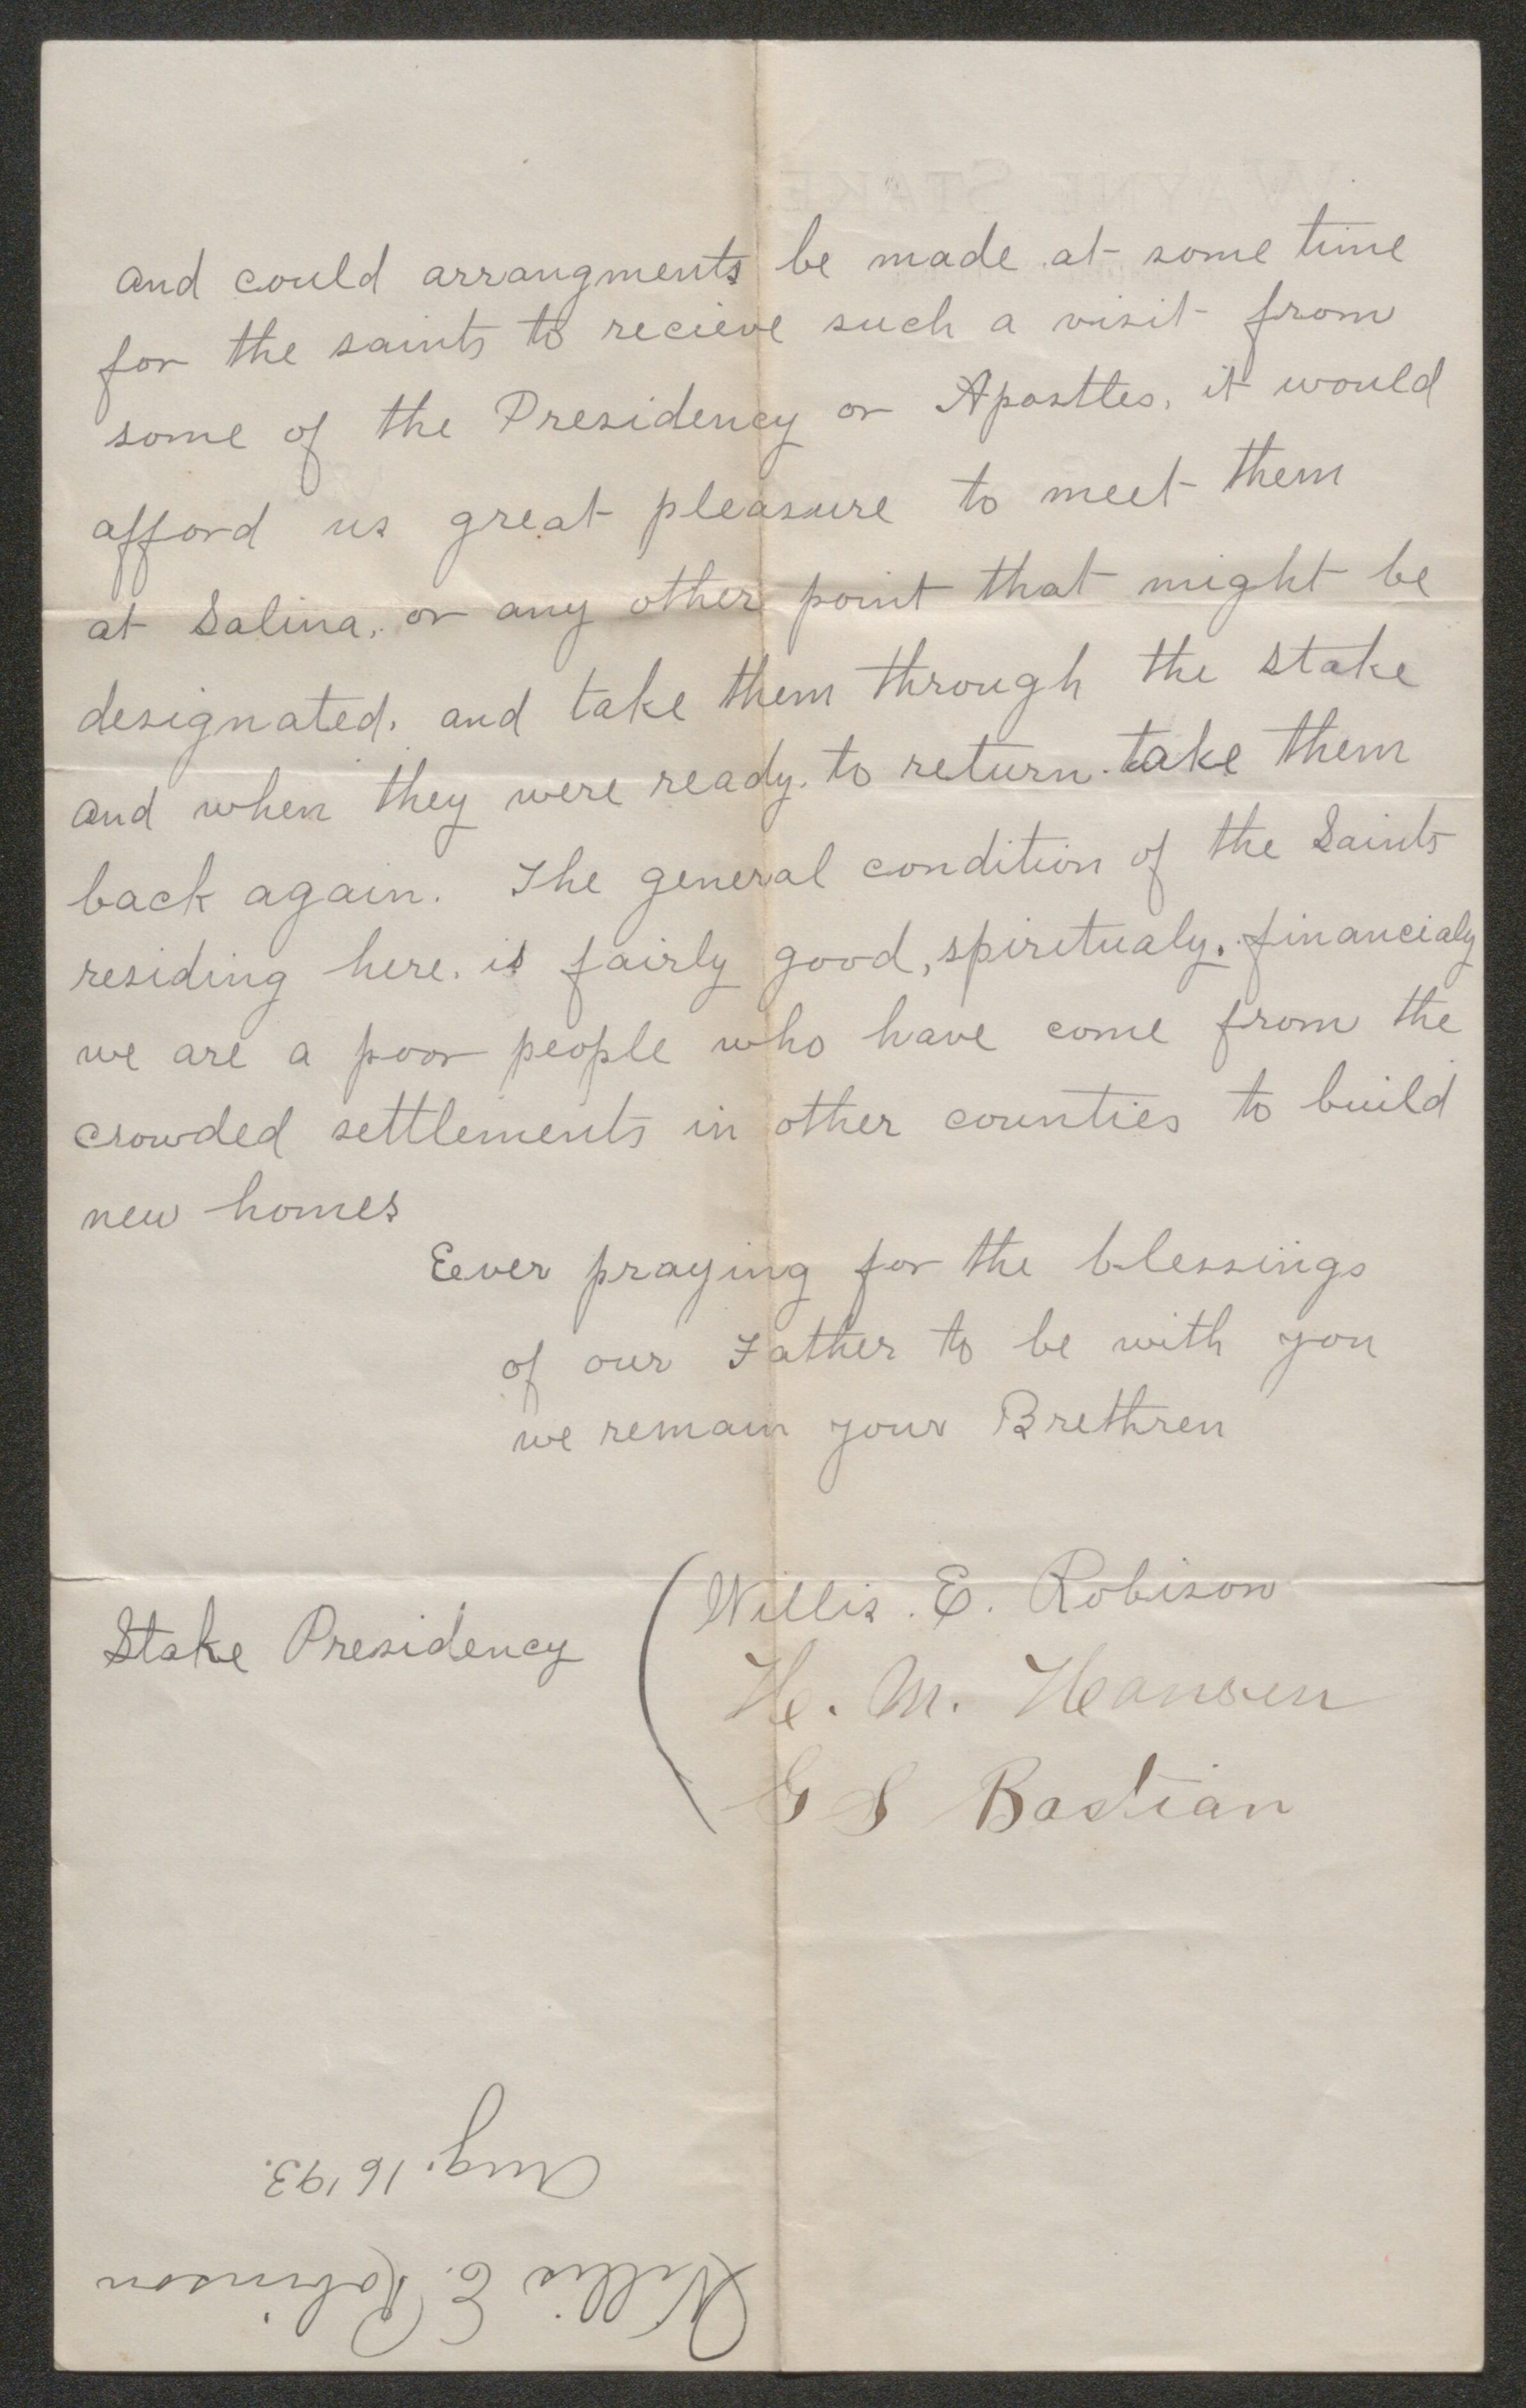 and could arrangments be made at some time
for the saints to recieve such a visit from
some of the Presidency or Apostles, it would
afford us great pleasure to meet them
at Salina, or any other point that might be
designated, and take them through the stake
and when they were ready. to return. take them
back again. The general condition of the Saints
residing here. is fairly good, spiritualy. financialy
we are a poor people who have come from the
crowded settlements in other counties to build
new homes
Eever praying for the blessings
of our Father to be with you
we remain your Brethren
Stake Presidency ( Willis. E. Robison
H. M. Hansen
G S Bastian
Willis E. Robinson
Aug. 16 '93.